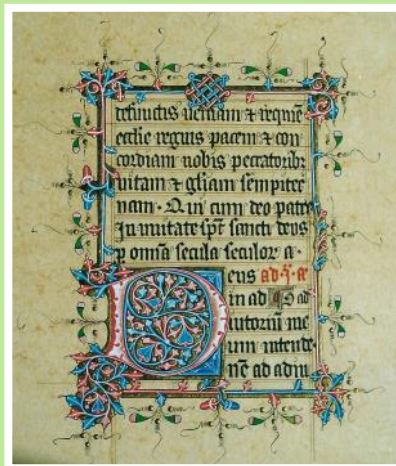 defunctis veniam & requie
ecclie reguis pacem & con
cordiam nobis peccatoribz
vitam & gliam sempiter
nam. Q in cum deo patre
In unitate spt sancti deus
p omnia secula seculor a.
eus ad
in ad
iutoriu me
um intende.
ne ad adiu